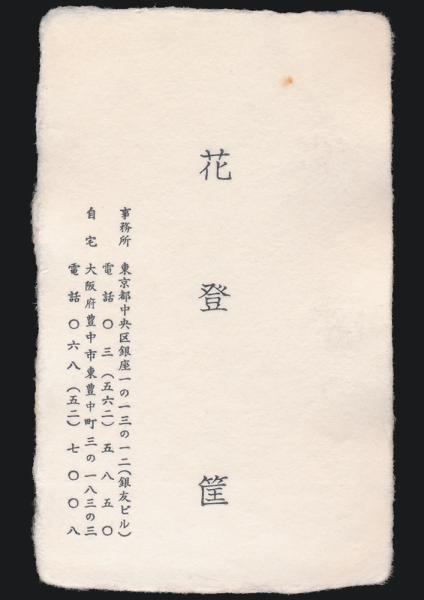 花登筐
事務所 東京都中央区銀座一の一三の一二(銀友ビル)
電話 〇三(五六二)五八五〇
自宅 大阪府豊中市東豊中町三の一八三の三
電話 〇六八(五二)七〇〇八